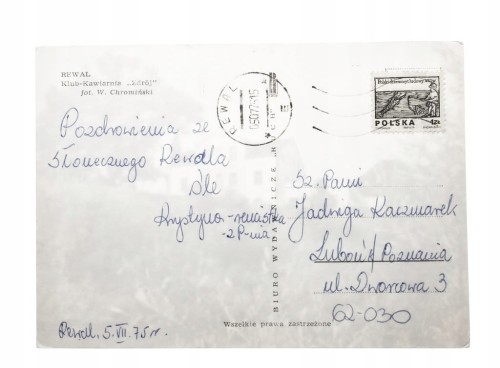 REWAL
Klub-Kawiarnia „Zdrój"
fot. W. Chromiński
REWAL
POLSKA
Pozdrowienia ze
Słonecznego Rewala
śle
Krystyna
z P-nia
BIURO WYDAWNICZE „RUCH"
Sz. Pani
Jadwiga Kaczmarek
Luboń k/Poznania
ul. Dworcowa 3
62-030
Wszelkie prawa zastrzeżone
Rewal. 5.VII.75 r.